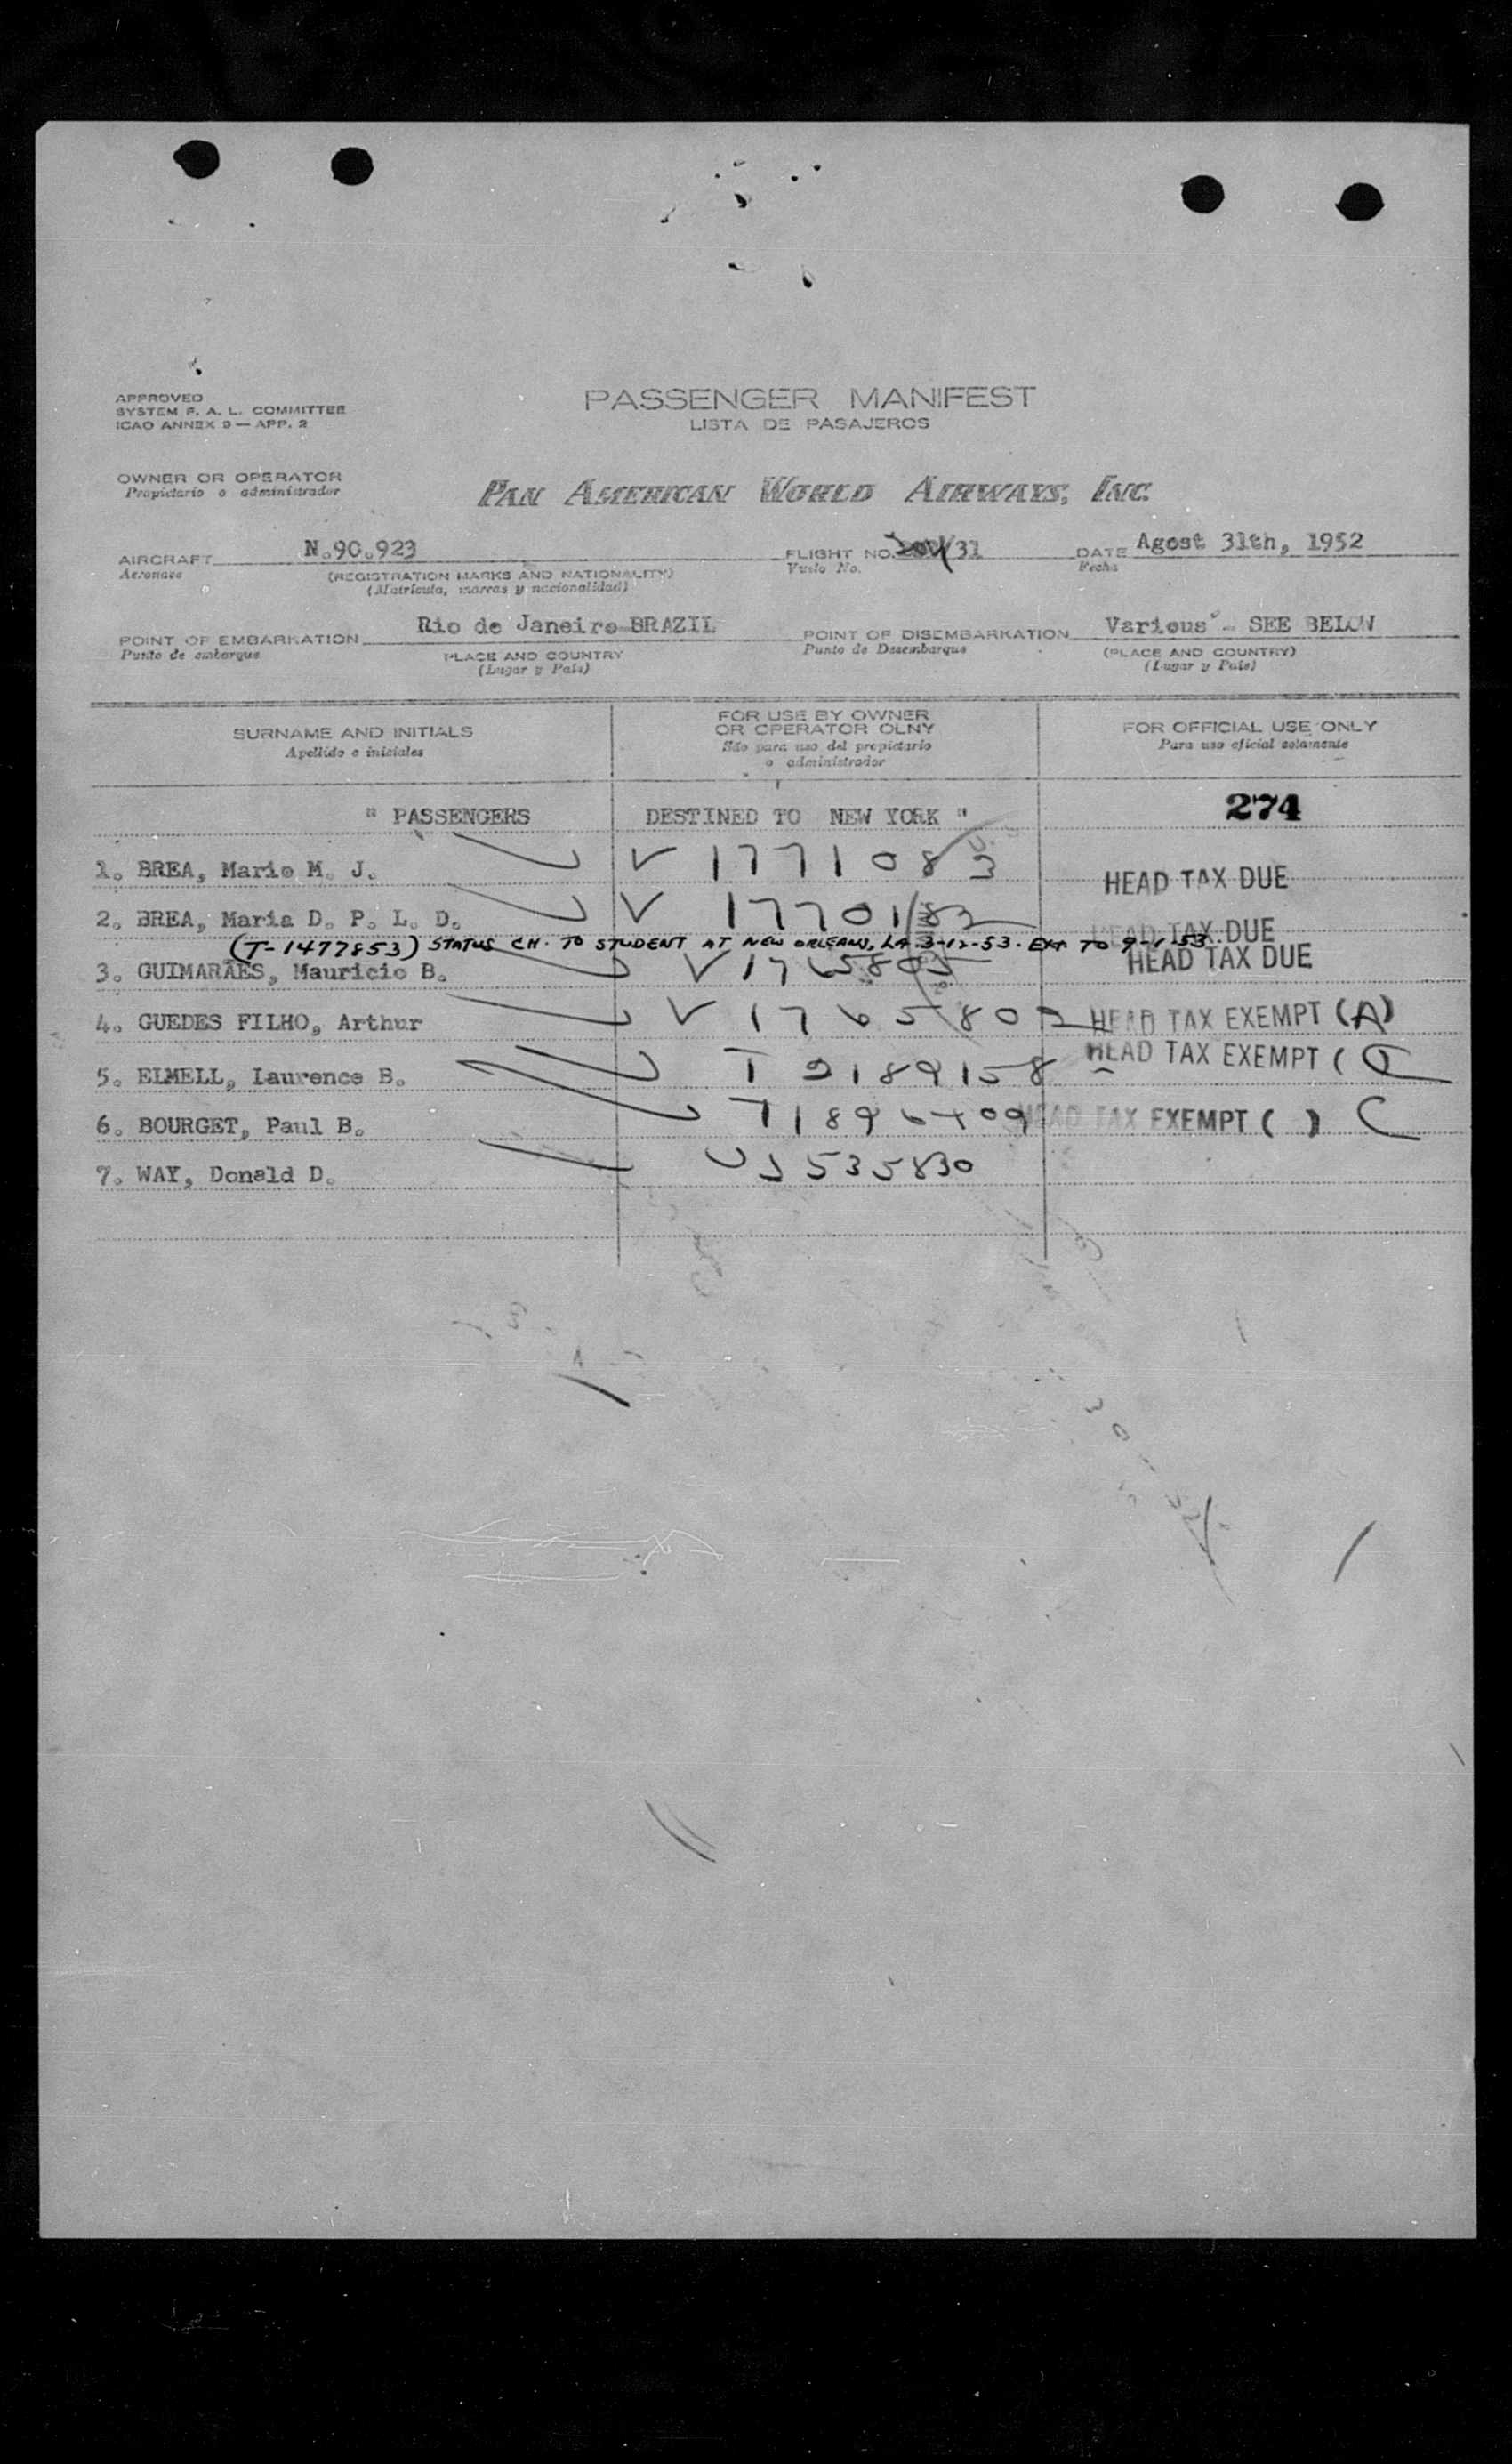 APPROVED
SYSTEM F. A. L. COMMITTEE
ICAO ANNEX 9 — APP. 2
PASSENGER MANIFEST
LISTA DE PASAJEROS
OWNER OR OPERATOR
Propietario o administrador
PAN AMERICAN WORLD AIRWAYS, INC.
AIRCRAFT N.90.923 FLIGHT NO. /31 DATE Agost 31th, 1952
Aeronave (REGISTRATION MARKS AND NATIONALITY) Vuelo No. Fecha
(Matricula, marcas y nacionalidad)
POINT OF EMBARKATION Rio de Janeiro-BRAZIL POINT OF DISEMBARKATION Various - SEE BELOW
Punto de embarque PLACE AND COUNTRY Punto de Desembarque (PLACE AND COUNTRY)
(Lugar y País) (Lugar y País)
SURNAME AND INITIALS FOR USE BY OWNER OR OPERATOR OLNY FOR OFFICIAL USE ONLY
Apellido e iniciales Sólo para uso del propietario o administrador Para uso oficial solamente
" PASSENGERS DESTINED TO NEW YORK " 274
1. BREA, Mario M. J. V 1771083 HEAD TAX DUE
2. BREA, Maria D. P. L. D. V 1770183 HEAD TAX DUE
(T-1477853) STATUS CH. TO STUDENT AT NEW ORLEANS, LA 3-12-53. EXT TO 9-1-53
3. GUIMARÃES, Mauricio B. V 1765805 HEAD TAX DUE
4. GUEDES FILHO, Arthur V 1765802 HEAD TAX EXEMPT (A)
5. ELMELL, Laurence B. T 2189158 HEAD TAX EXEMPT (
6. BOURGET, Paul B. HEAD TAX EXEMPT ( ) C
7. WAY, Donald D. US 535830